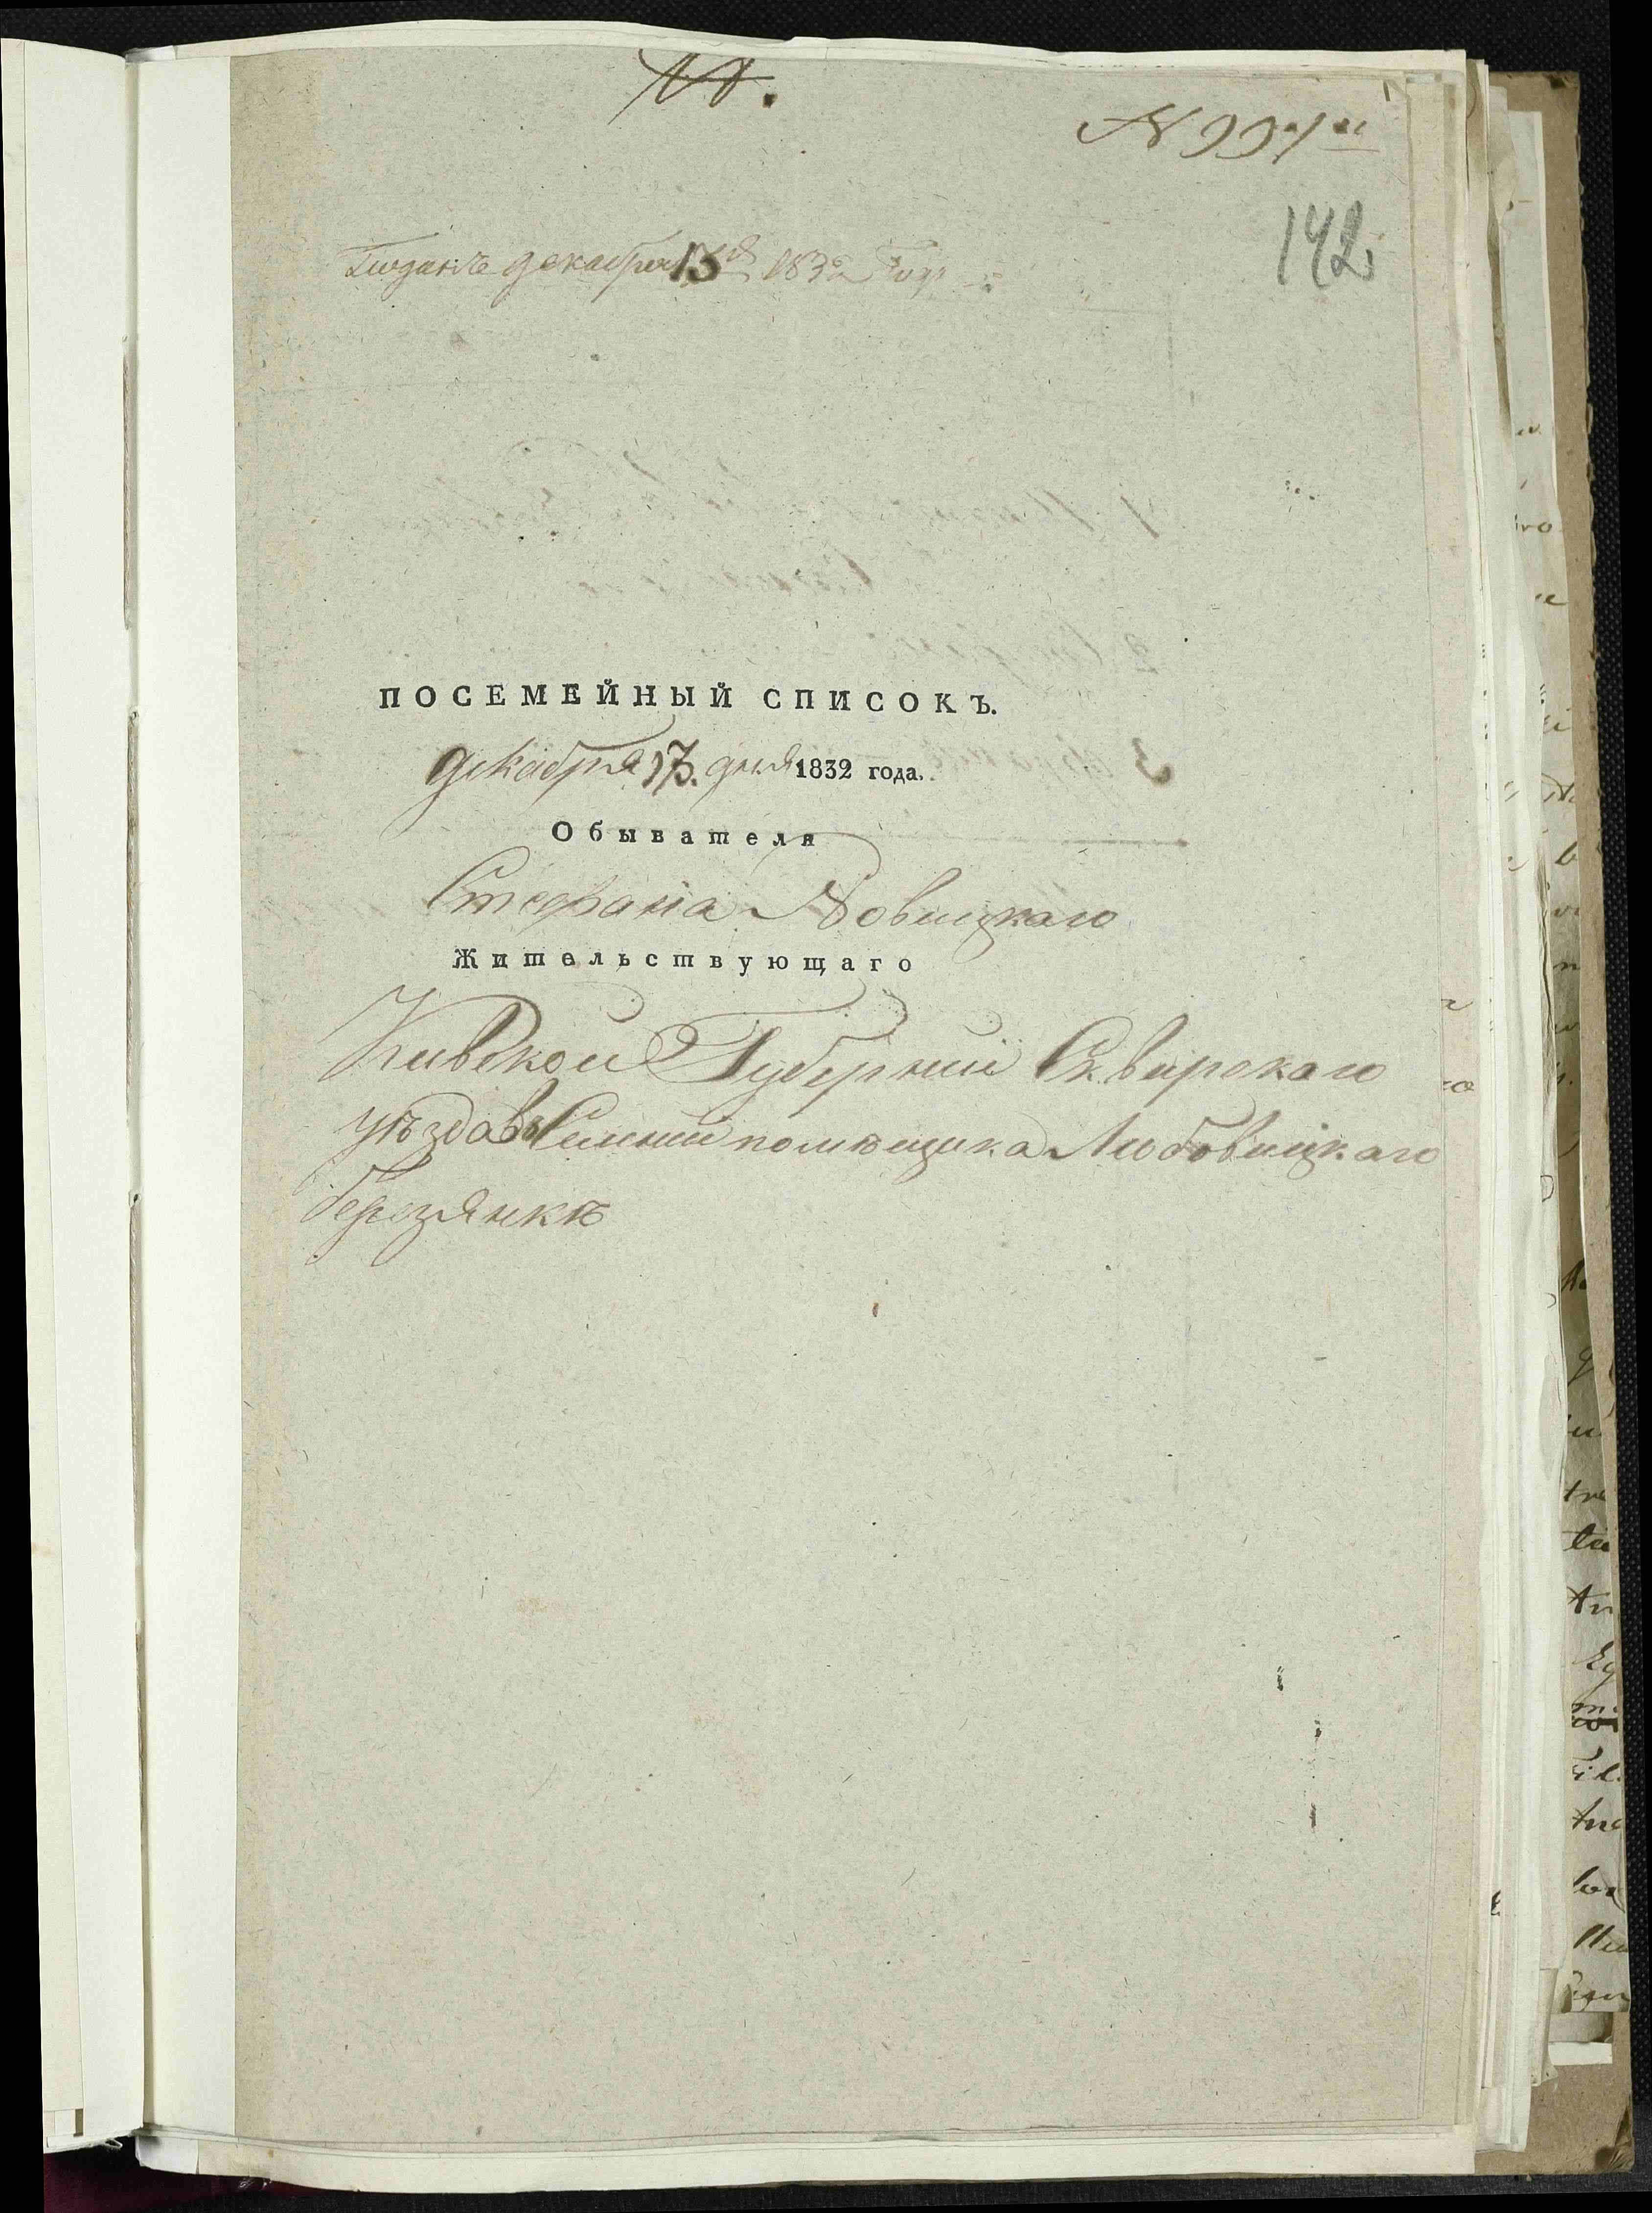 142
Поданъ декабря 13 1832 Года
ПОСЕМЕЙНЫЙ СПИСОКЪ.
декабря 13. дня 1832 года.
Обывателя
Стефана Новицкаго
Жительствующаго
Киевской Губернии Сквирскаго
уѣзда въ помѣщика Любовицкаго
Березянкѣ